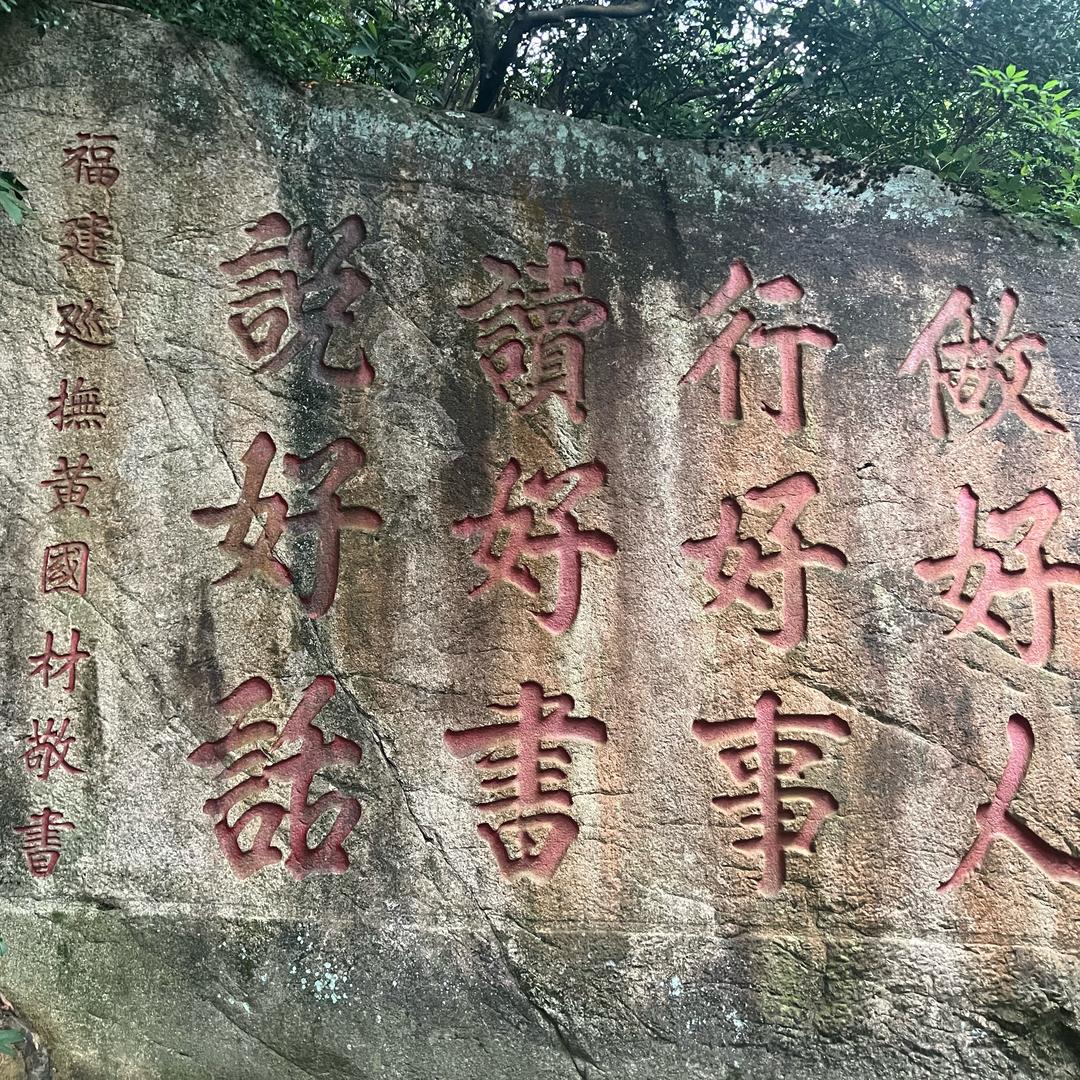 做好人
行好事
讀好書
説好話
福建廵撫黃國材敬書